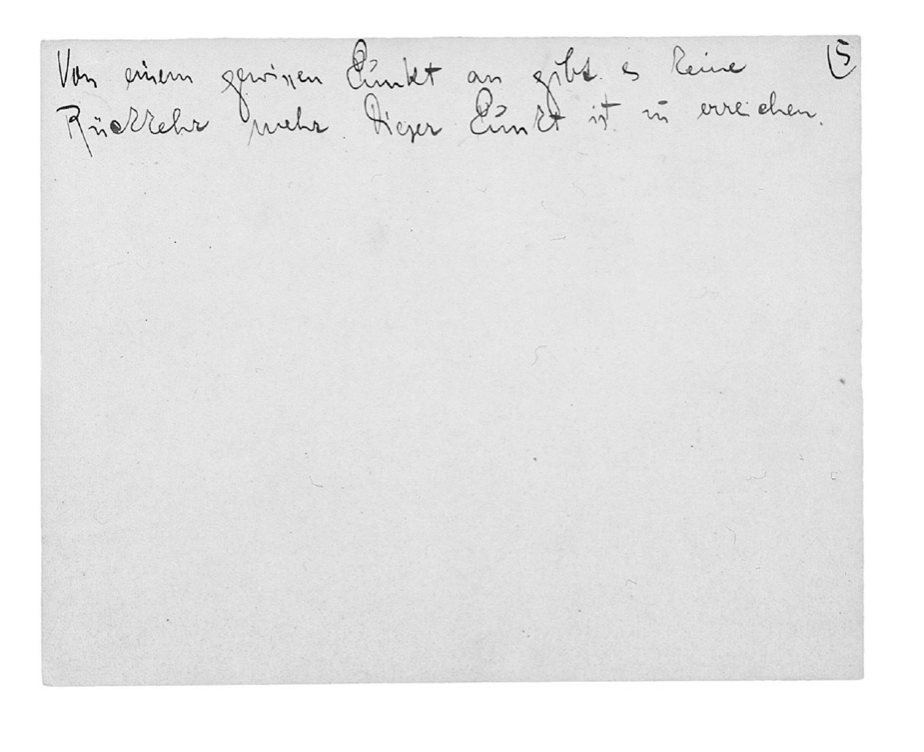 Von einem gewissen Punkt an gibt es keine 5
Rückkehr mehr. Dieser Punkt ist zu erreichen.